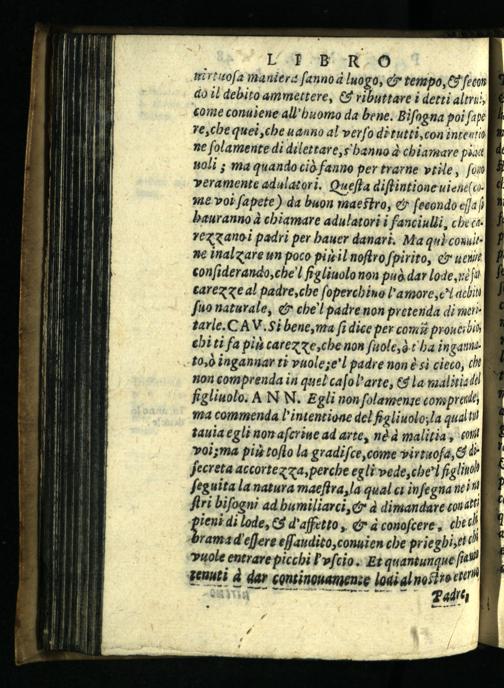 LIBRO
virtuosa maniera sanno à luogo, & tempo, & secon
do il debito ammettere, & ributtare i detti altrui,
come conuiene all'huomo da bene. Bisogna poi sape
re, che quei, che uanno al verso di tutti, con intentio
ne solamente di dilettare, s'hanno à chiamare piace
uoli; ma quando ciò fanno per trarne vtile, sono
veramente adulatori. Questa distintione uiene (co-
me voi sapete) da buon maestro, & secondo essa si
hauranno à chiamare adulatori i fanciulli, che ca-
rezzano i padri per hauer danari. Ma quì conuie-
ne inalzare un poco più il nostro spirito, & uenire
considerando, che'l figliuolo non può dar lode, nè far
carezze al padre, che soperchino l'amore, e'l debito
suo naturale, & che'l padre non pretenda di meri-
tarle. CAV. Si bene, ma si dice per comũ prouerbio,
chi ti fa più carezze, che non suole, ò t'ha inganna-
to, ò ingannar ti vuole; e'l padre non è sì cieco, che
non comprenda in quel caso l'arte, & la malitia del
figliuolo. ANN. Egli non solamente comprende,
ma commenda l'intentione del figliuolo; la qual tut
tauia egli non ascriue ad arte, nè à malitia, come
voi; ma più tosto la gradisce, come virtuosa, & di-
screta accortezza, perche egli vede, che'l figliuolo
seguita la natura maestra, la qual ci insegna ne i no
stri bisogni ad humiliarci, & à dimandare con atti
pieni di lode, & d'affetto, & à conoscere, che chi
brama d'essere essaudito, conuien che prieghi, et chi
vuole entrare picchi l'vscio. Et quantunque siamo
tenuti à dar continouamente lodi al nostro eterno
Padre,